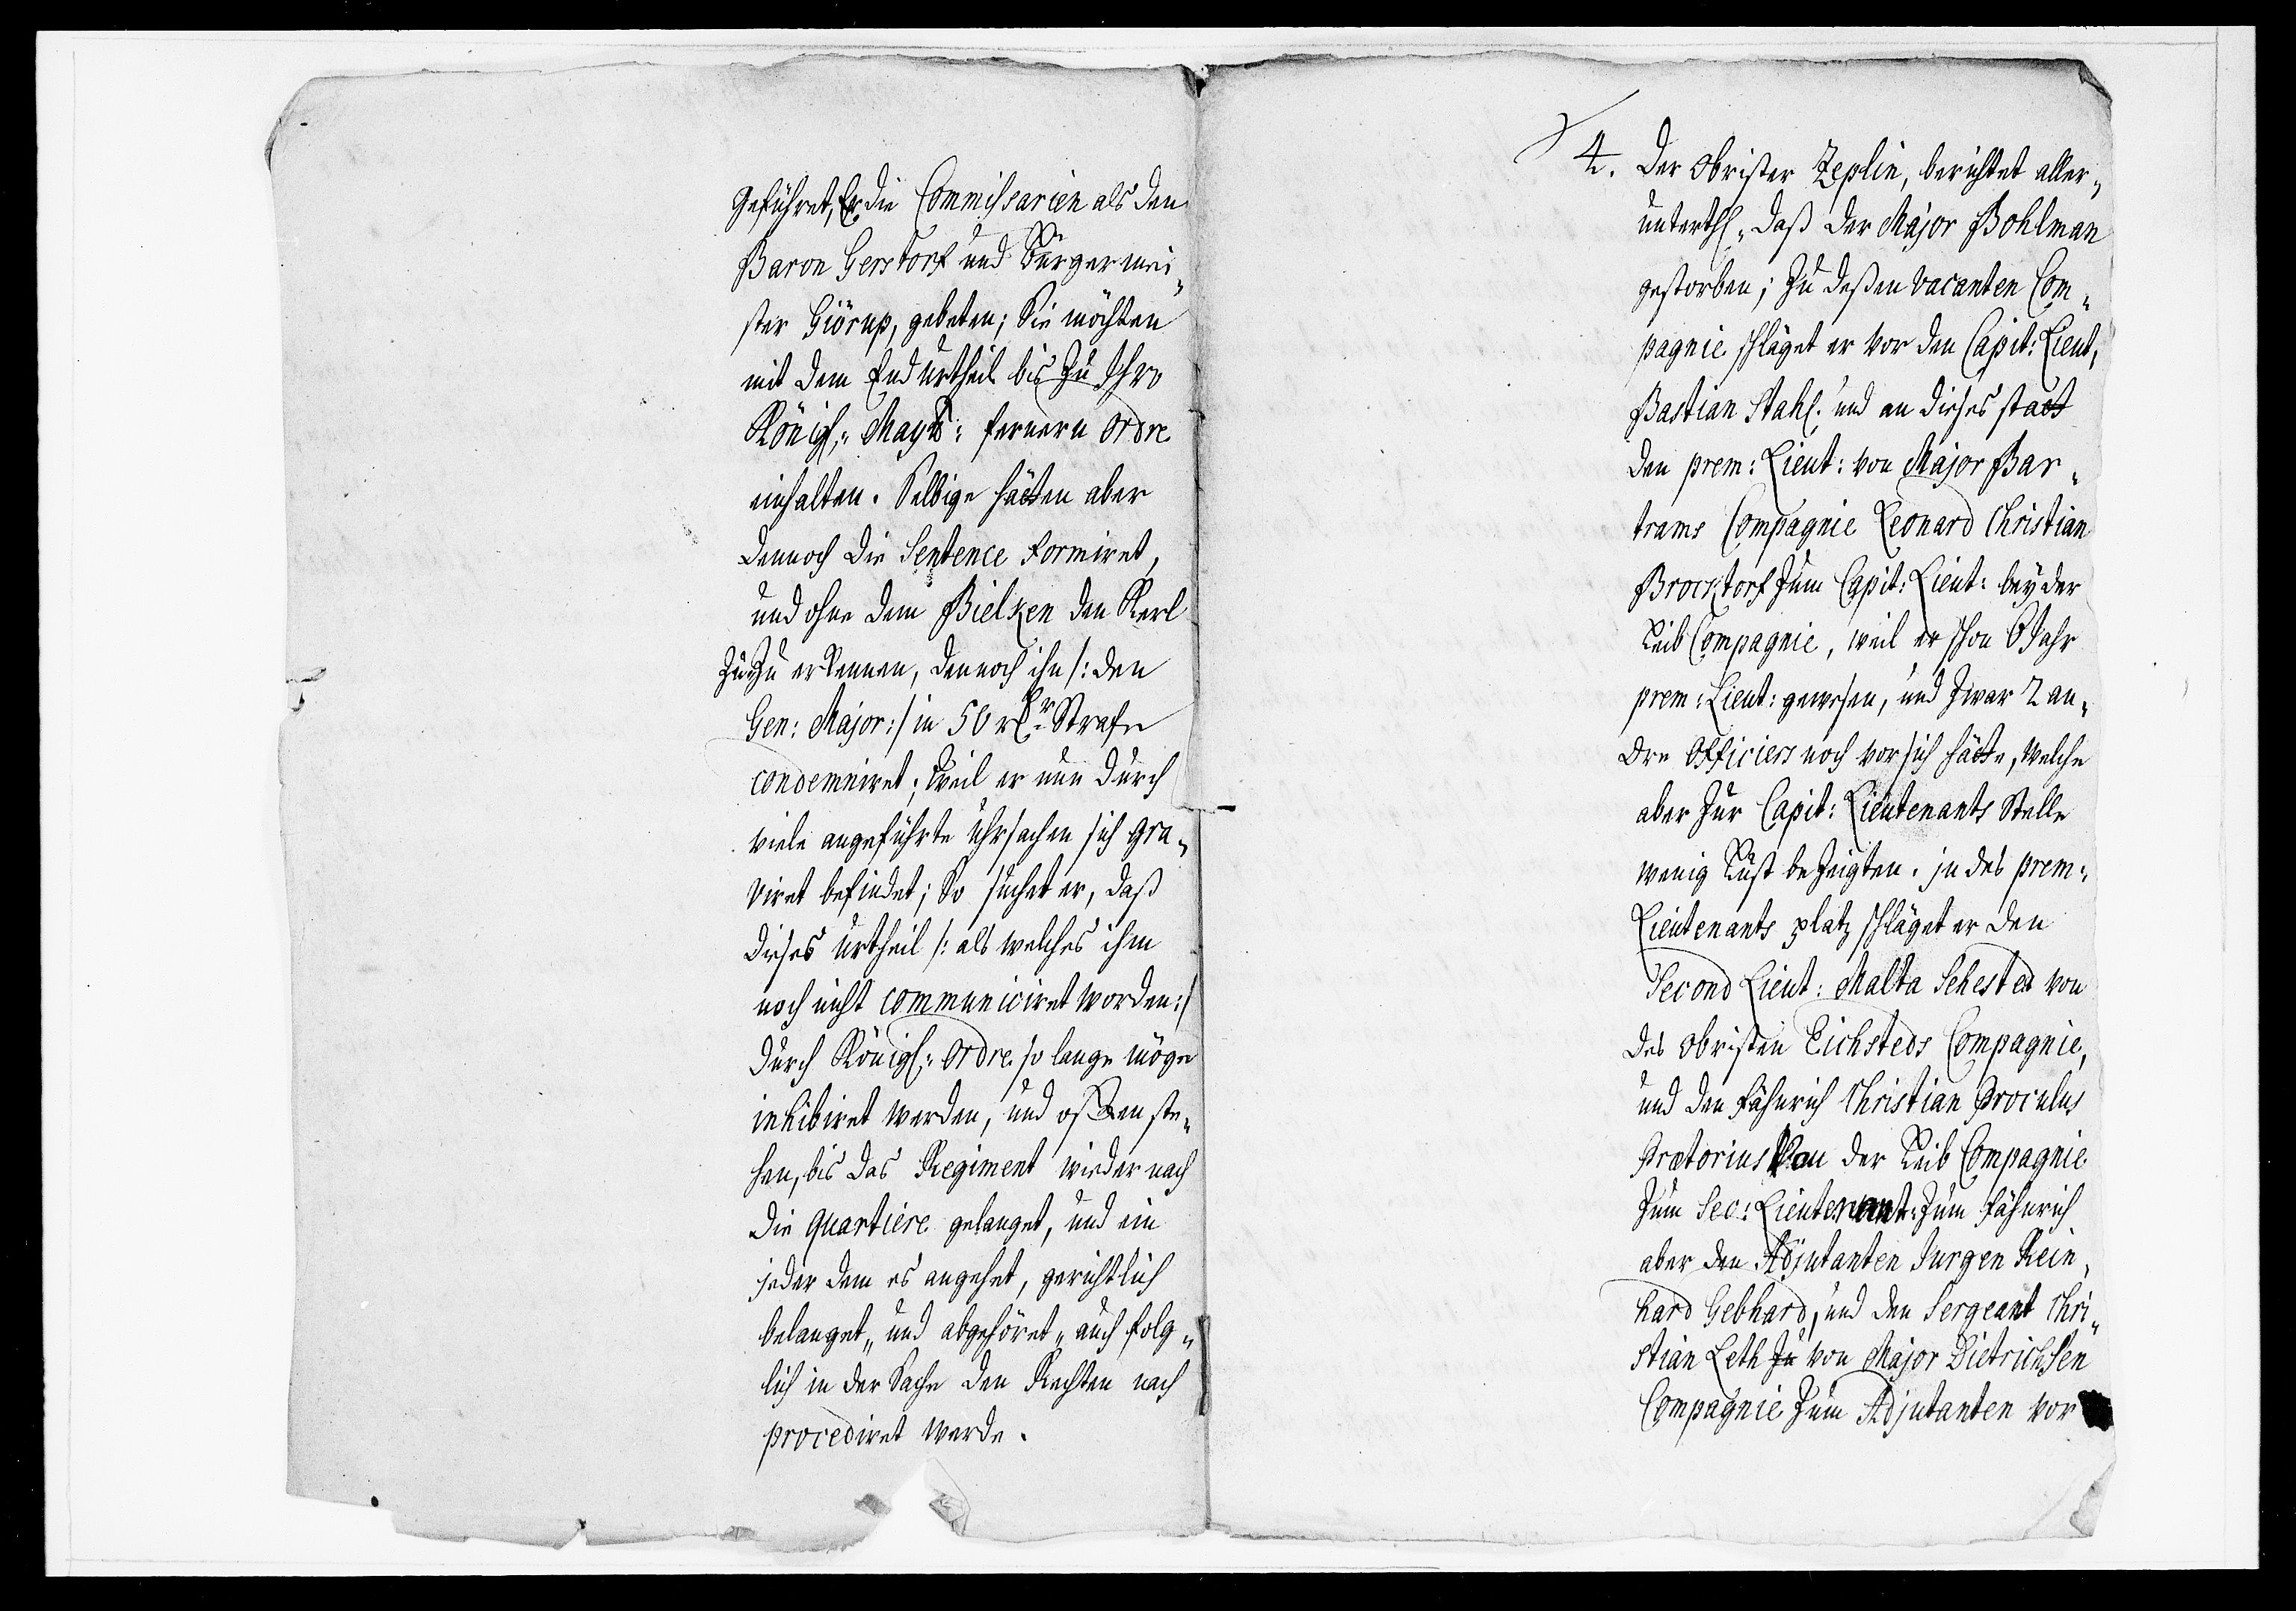 geführet, Er die Commissarien als den
Baron Gersdorf und Bürgermei„
ster Giörup, gebeten; Sie möchten
mit dem Endurtheil bis zu Ihro
Königl: Mayt: fernern Ordre
einhalten. Selbige hätten aber
dennoch die Sentence formiret,
und ohne dem Bielken den Kerl
zuzuerkennen, dennoch ihn /: den
Gen: Major :/ in 50 rthlr Strafe
condemniret; Weil er nun durch
viele angeführte Uhrsachen sich gra„
viret befindet; So suchet er, daß
dieses Urtheil /: als welches ihm
noch nicht communiciret worden :/
durch Königl: Ordre so lange möge
inhibiret werden, und offen ste„
hen, bis das Regiment wieder nach
die Quartiere gelanget, und ein
jeder dem es angehet, gerichtlich
belanget, und abgehöret, auch folg„
lich in der Sache den Rechten nach
procediret werde.
4. Der Obrister Zeplin, berichtet aller„
unterthl. daß der Major Bohlman
gestorben; Zu deßen vacanten Com„
pagnie schläget er vor den Capit: Lieut,
Bastian Stahl. und an dieses statt
den prem: Lieut: von Major Bar„
trams Compagnie Leonard Christian
Brocktorf zum Capit: Lieut: bey der
Leib Compagnie, weil er schon 6 Jahr
prem: Lieut: gewesen, und zwar 2 an„
dre Officiers noch vor sich hätte, welche
aber zur Capit: Lieutenants Stelle
wenig Lust bezeigten. in des prem:
Lieutenants platz schläget er den
Second Lieut: Malta Sehested von
des Obristen Eichsteds Compagnie,
und den Fähnrich Christian Proculus
Prætorius von der Leib Compagnie
zum Sec: Lieutenant: zum Fähnrich
aber den Adjutanten Jurgen Rein„
hard Gebhard, und den Sergeant Chri„
stian Leth zu von Major Dietrichsen
Compagnie zum Adjutanten vor